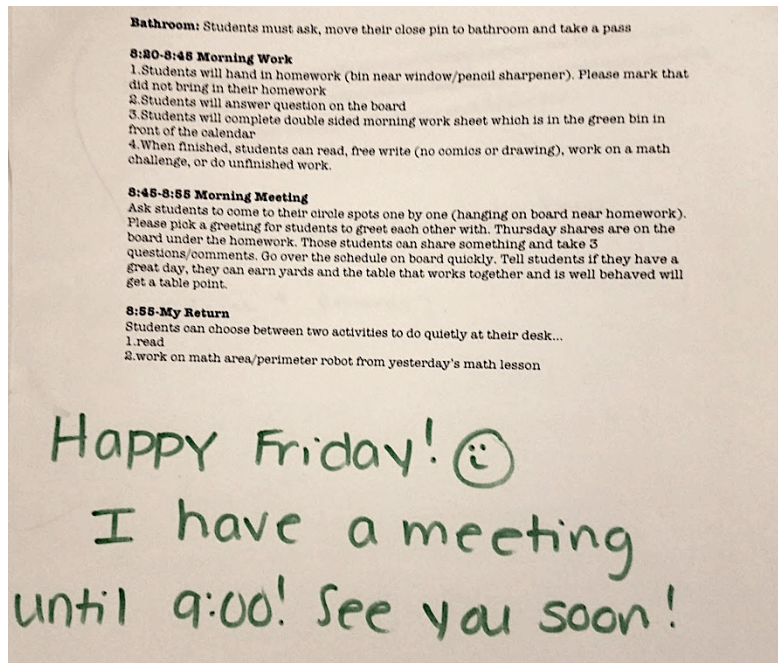 Bathroom: Students must ask, move their close pin to bathroom and take a pass
8:20-8:45 Morning Work
1.Students will hand in homework (bin near window/pencil sharpener). Please mark that
did not bring in their homework
2.Students will answer question on the board
3.Students will complete double sided morning work sheet which is in the green bin in
front of the calendar
4.When finished, students can read, free write (no comics or drawing), work on a math
challenge, or do unfinished work.
8:45-8:55 Morning Meeting
Ask students to come to their circle spots one by one (hanging on board near homework).
Please pick a greeting for students to greet each other with. Thursday shares are on the
board under the homework. Those students can share something and take 3
questions/comments. Go over the schedule on board quickly. Tell students if they have a
great day, they can earn yards and the table that works together and is well behaved will
get a table point.
8:55-My Return
Students can choose between two activities to do quietly at their desk...
1.read
2.work on math area/perimeter robot from yesterday's math lesson
Happy Friday!
I have a meeting
until 9:00! See you soon!